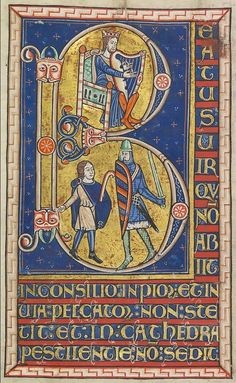 B
E
A
T
U
S
U
I
R
QV
NO
AB
IIT
INCONSILIO INPIOR ET IN
UIA PECCATOR NON STE
TIT ET IN CATHEDRA
PESTILENTIE NO SEDIT